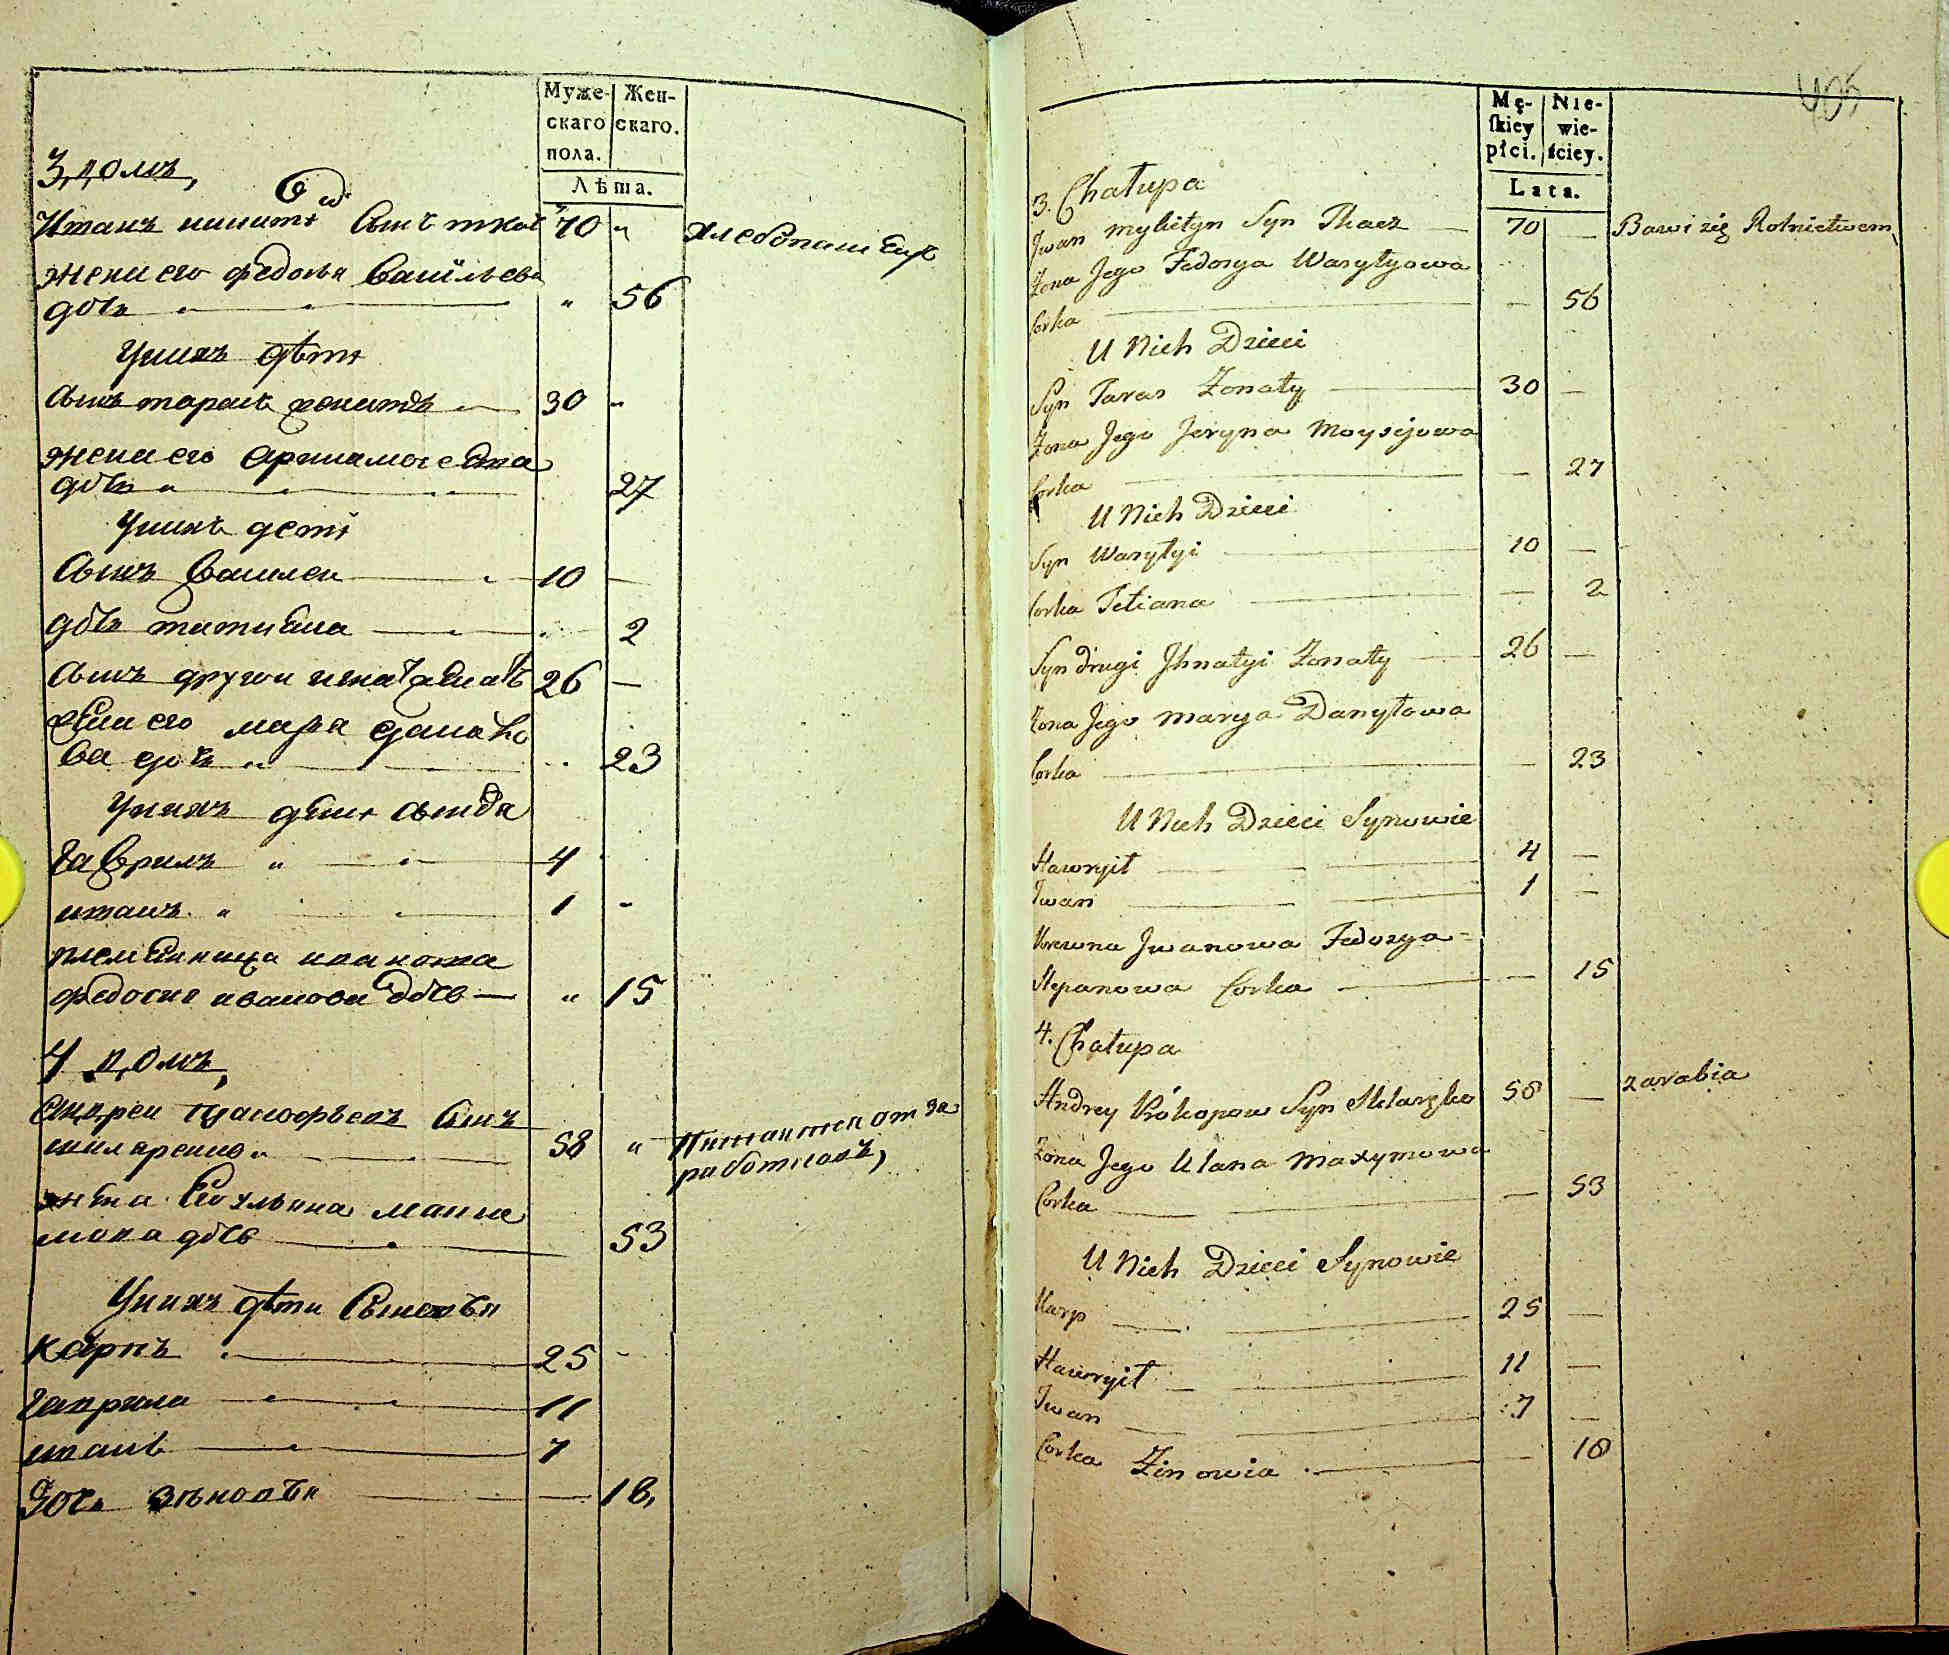 Муже- Жен-
скаго скаго.
пола.
Лѣта.
3, домъ,
Иванъ никитъ Сынъ ткачъ 70 " Хлебопашецъ
жена его федосья Василева
дочь " 56
У нихъ дѣти
сынъ тарасъ женатъ 30 "
жена его
дочь 27
У нихъ дети
Сынъ Василеи 10 —
дочь татиана 2
сынъ другои игнатъ женатъ 26 —
жена его маря данило
ва дочь 23
У нихъ дети сыновя
Гаврилъ " 4
иванъ " 1 -
племенница иванова
федосия иванова дочь — " 15
4 домъ,
андреи прокофьевъ сынъ
шкляренко 58 " Питаится от за
работковъ,
жена его ульяна макси
мова дочь 53
У нихъ дѣти Сыновья
Карпъ 25 -
Гаврила 11
иванъ 7
Дочь зѣновья — 18,
405
Mę- Nie-
ſkiey wie-
płci. ściey.
Lata.
3. Chałupa
Jwan mykityn Syn Tkacz — 70 — Bawi się Rolnictwem
Żona Jego Fedosya Wasylyowa
Corka — — 56
U Nich Dzieci
Syn Taras Żonaty — 30 —
Żona Jego Jeryna Moysijowa
Corka — — 27
U Nich Dzieci
Syn Wasylyi — 10 —
Corka Tetiana — — 2
Syn drugi Jhnatyi Żonaty — 26 —
Żona Jego Marya Danyłowa
Corka — — 23
U Nich Dzieci Synowie
Hawryił — — 4 —
Jwan — — 1 —
Jwanowa Fedosya
Stepanowa Corka — — 15
4. Chałupa
Andrey Prokopow Syn Szklarzko 58 — zarabia
Żona Jego Ulana Maxymowa
Corka — — 53
U Nich Dzieci Synowie
Karp — — 25 —
Hawryił — — 11 —
Jwan — — 7 —
Corka Zinowia — — 18